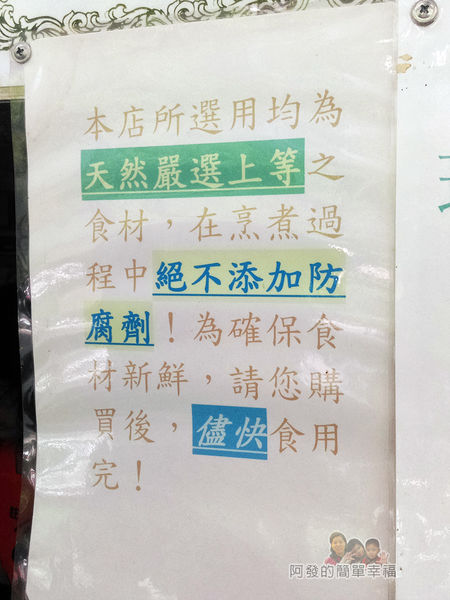 本店所選用均為
天然嚴選上等之
食材，在烹煮過
程中絕不添加防
腐劑！為確保食
材新鮮，請您購
買後，儘快食用
完！
阿發的簡單幸福